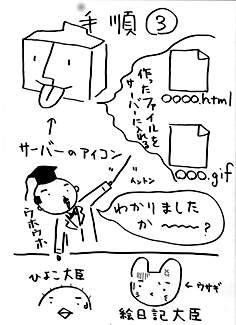 手順③
作ったファイルを
サーバーに入れる
○○○○.html
○○○○.gif
サーバーのアイコン
トントン
ウホウホ
わかりました
が〜〜〜?
ひよこ大臣
ウサギ
絵日記大臣